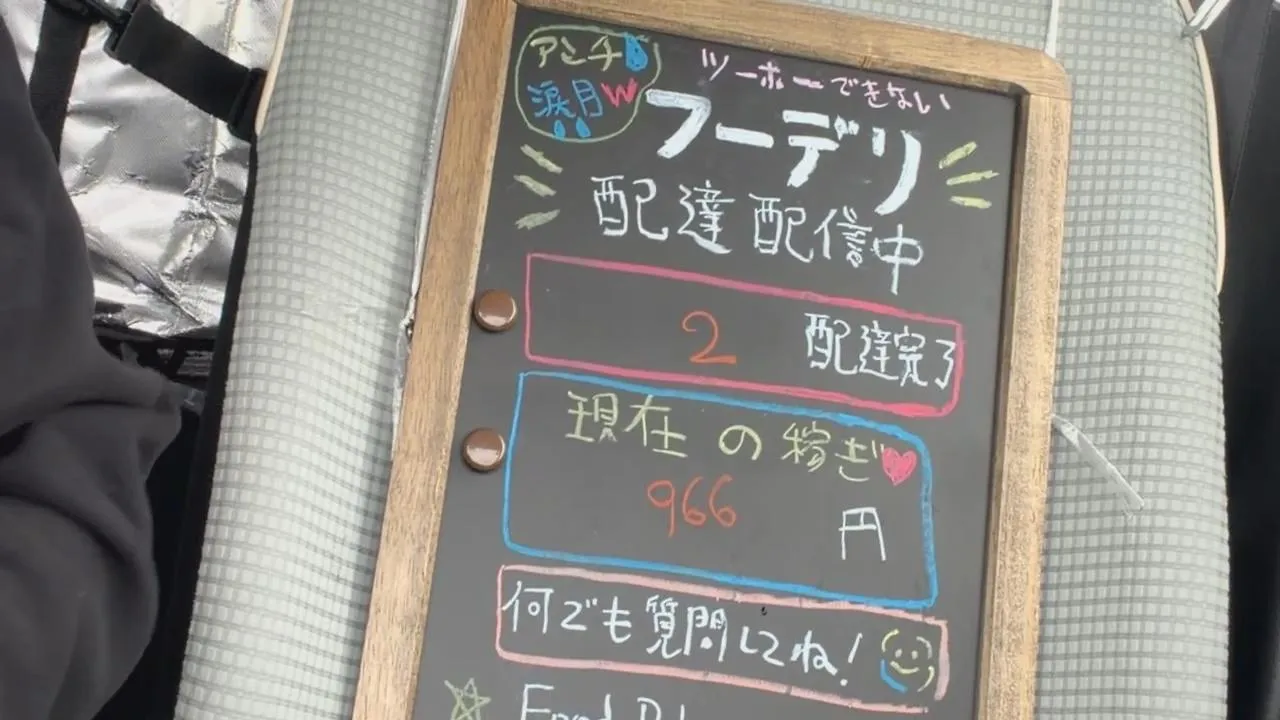 アンチ
涙目w
ツーホーできない
フーデリ
配達配信中
2 配達完了
現在の稼ぎ
966 円
何でも質問してね!
Food